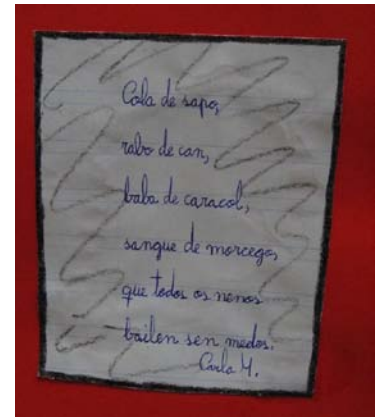 Cola de sapo,
rabo de can,
baba de caracol,
sangue de morcego,
que todos os nenos
bailen sen medos.
Carla M.